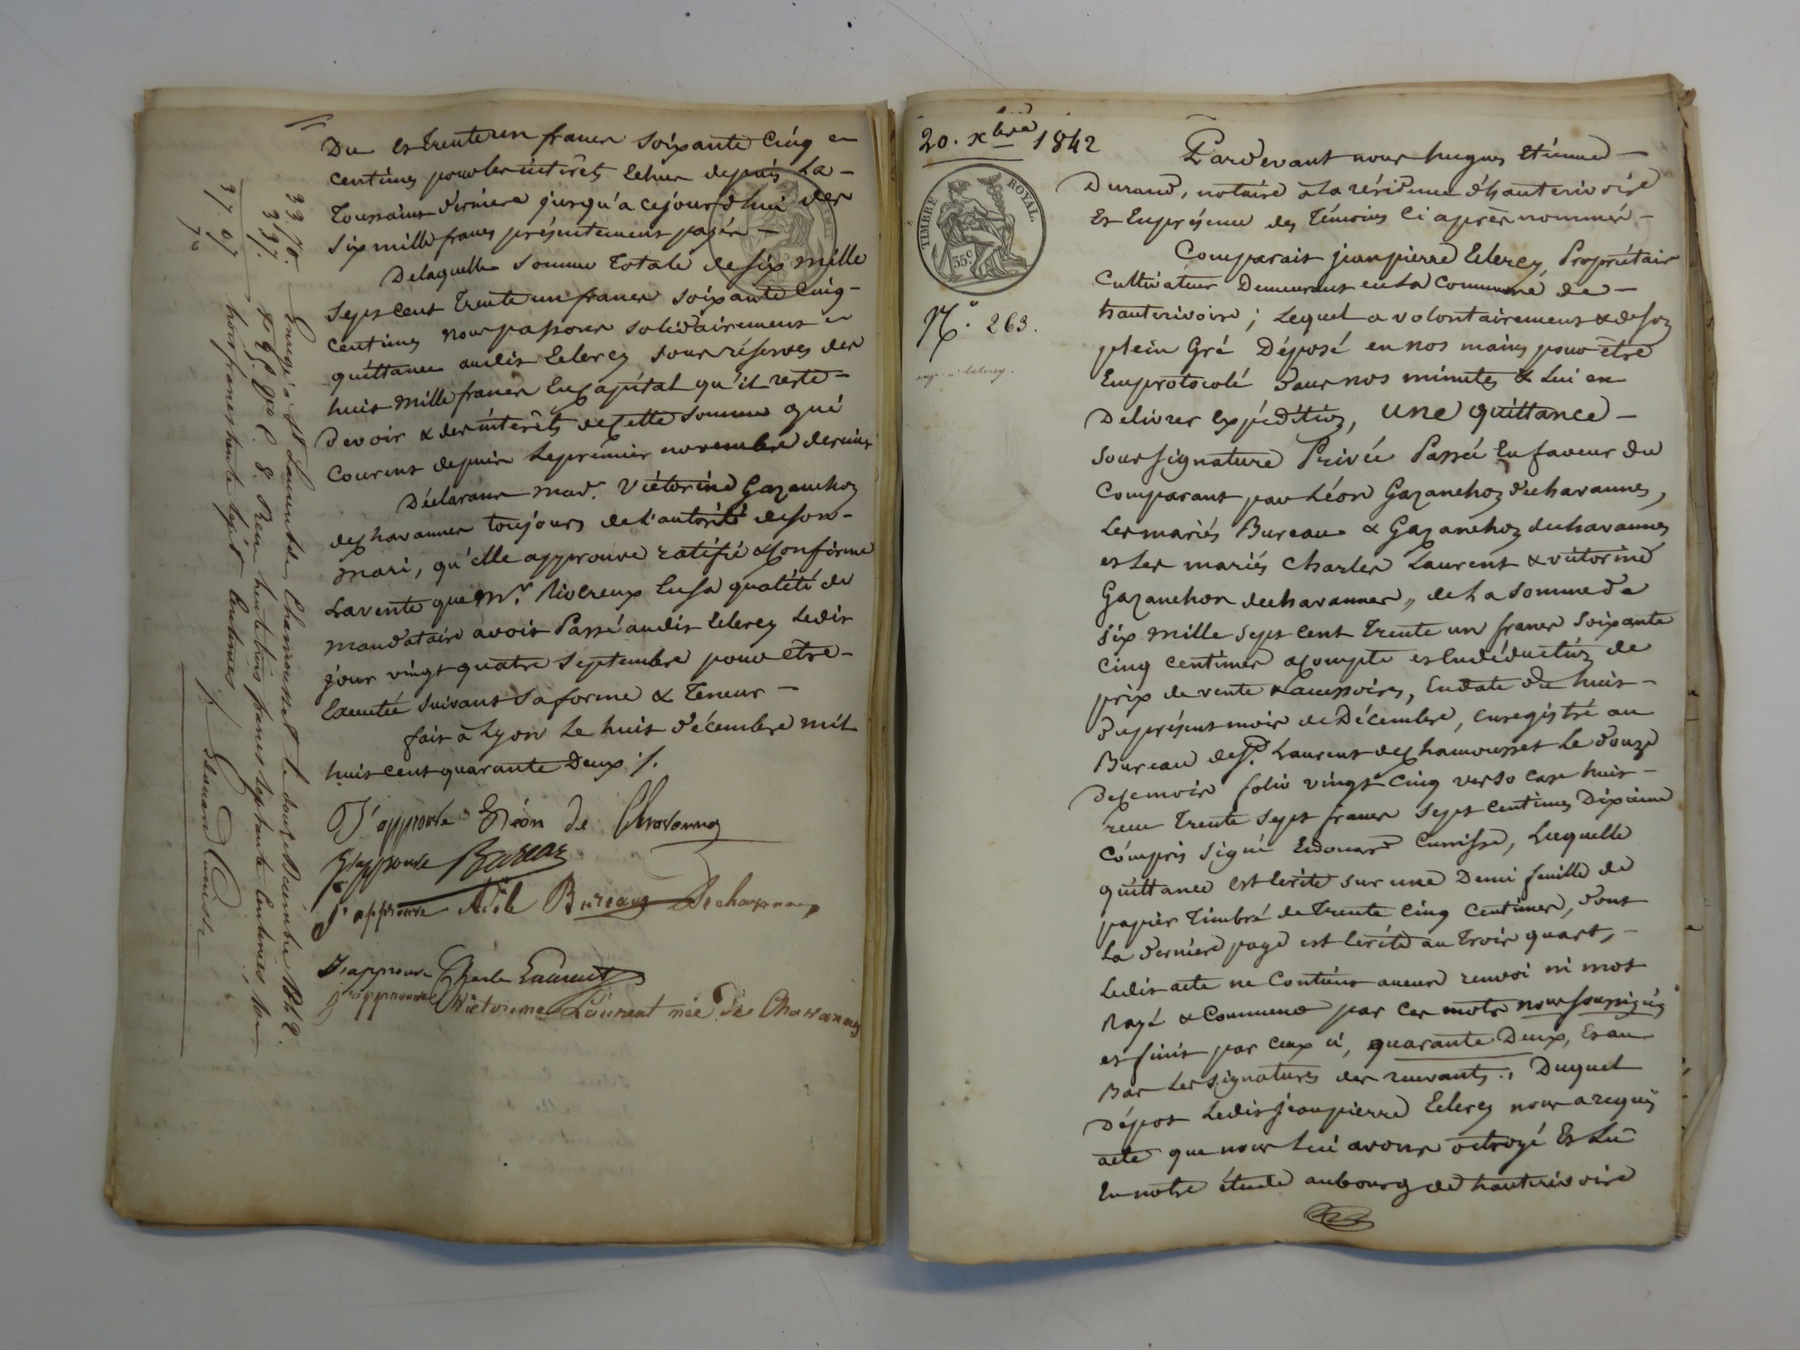 Du et trente un francs soixante cinq
centimes pour les intérêts échus depuis La
Toussaint dernière jusqu'à ce jour d'hui des
six mille francs présentement payés
De laquelle somme totale de six mille
sept cent trente un francs soixante cinq
centimes nous passons solidairement
quittance audit Leleroy sous réserves des
huit mille francs en Capital qu'il reste
devoir & des intérêts de cette somme qui
Courent depuis Le premier novembre dernier
Déclarant mad.e Victorine Gazanchon
dechavannes toujours de l'autorité de son
mari, qu'elle approuve ratifie & Confirme
La vente que Mr. Riverieux En sa qualité de
mandataire avoit Passé audit Leleroy Ledit
jour vingt quatre septembre pour être
Exécutée suivant sa forme & Teneur
fait à Lyon Le huit décembre mil
huit cent quarante Deux ./.
J'approuve Léon de Chavannes
J'approuve Bureau
J'approuve Adèle Bureau Dechavannes
J'approuve Charles Laurent
J'approuve Victorine Laurent née De Chavannes
Enregé à St Laurent de Chamousset le douze Décembre 1842.
fo 25 vo C. 8. Reçu trente trois francs soixante dix centimes,
trois francs trente sept Centimes
Edouard Cunisse
33. 70.
3 37.
37. 07
20. xbre 1842
TIMBRE ROYAL.
35 c.
No. 263.
exp. à Leleroy.
Pardevant nous hugues Etienne
Durand, notaire à La résidence d'hauterivoire
Et En présence des Témoins Ci après nommés
Comparait jean pierre Leleroy, Propriétaire
Cultivateur Demeurant en La Commune de
hauterivoire ; Lequel a volontairement & de son
plein Gré Déposé en nos mains pour être
Emprotocolé dans nos minutes & Lui en
Délivrer Expédition, une quittance
sous signature Privée Passée En faveur du
Comparant par Léon Gazanchon dechavannes,
Les mariés Bureau & Gazanchon dechavannes
et Les mariés Charles Laurent & victorine
Gazanchon dechavannes, de La Somme de
six mille sept cent trente un francs soixante
Cinq centimes acompte et En déduction de
prix de vente & accessoires, En date du huit
du présent mois de Décembre, enregistré au
Bureau de St. Laurent de Chamousset Le douze
de ce mois folio vingt cinq verso case huit
reçu trente sept francs sept centimes Dixième
Compris signé Edouard Cunisse, Laquelle
quittance est Ecrite sur une Demi feuille de
papier Timbré de trente cinq centimes, dont
La dernière page est Ecrite au trois quart,
Ledit acte ne Contient aucun renvoi ni mot
Rayé & Commence par Ces mots nous soussignés
et finit par Ceux ci, quarante Deux, Et au
Bas Les signatures des suivants ; Duquel
Dépôt Ledit jean pierre Leleroy nous a requis
acte que nous Lui avons octroyé Et Lu
En notre étude au bourg de hauterivoire